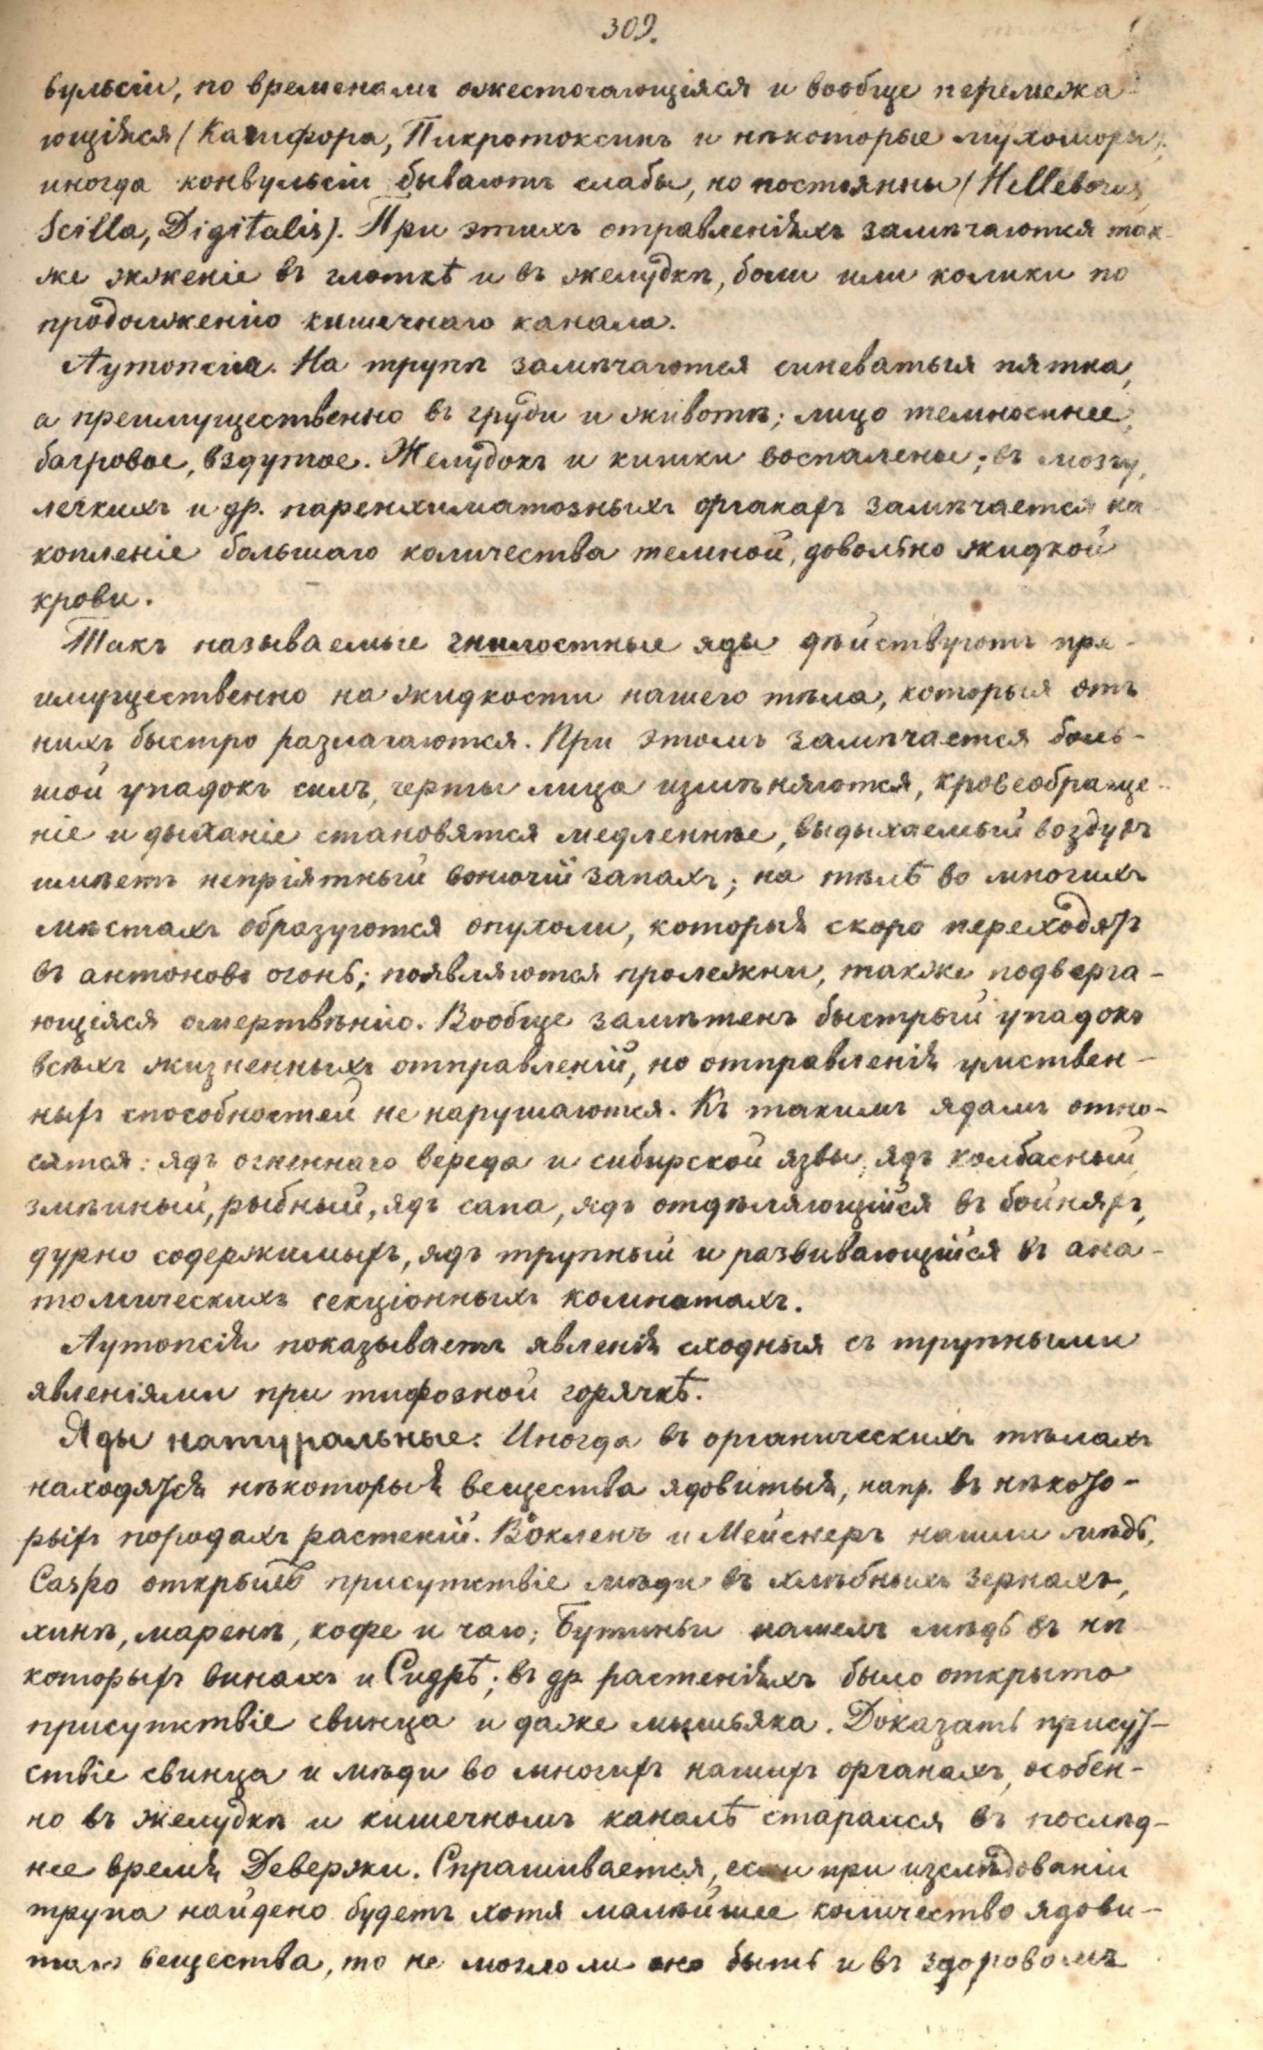 309.
вульсіи, по временамъ ожесточающіяся и вообще перемежа-
ющіяся (Камфора, Пикротоксинъ и нѣкоторые мухоморы),
иногда конвульсіи бываютъ слабы, но постоянны (Helleborus,
Scilla, Digitalis). При этихъ отравленіяхъ замѣчаются так-
же жженіе въ глоткѣ и въ желудкѣ, боли или колики по
продолженію кишечнаго канала.
Аутопсія. На трупѣ замѣчаются синеватыя пятна,
а преимущественно въ груди и животѣ; лицо темносинее,
багровое, вздутое. Желудокъ и кишки воспалены; въ мозгу,
легкихъ и др. паренхиматозныхъ органахъ замѣчается на-
копленіе большаго количества темной, довольно жидкой
крови.
Такъ называемые гнилостные яды дѣйствуютъ пре-
имущественно на жидкости нашего тѣла, которыя отъ
нихъ быстро разлагаются. При этомъ замѣчается боль-
шой упадокъ силъ, черты лица измѣняются, кровеобраще-
ніе и дыханіе становятся медленнѣе, выдыхаемый воздухъ
имѣетъ непріятный вонючій запахъ; на тѣлѣ во многихъ
мѣстахъ образуются опухоли, которыя скоро переходятъ
въ антоновъ огонь; появляются пролежни, также подверга-
ющіяся омертвѣнію. Вообще замѣтенъ быстрый упадокъ
всѣхъ жизненныхъ отправленій, но отправленія умствен-
ныхъ способностей не нарушаются. Къ такимъ ядамъ отно-
сятся: ядъ огненнаго вереда и сибирской язвы, ядъ колбасный,
змѣиный, рыбный, ядъ сапа, ядъ отдѣляющійся въ бойняхъ,
дурно содержимыхъ, ядъ трупный и развивающійся въ ана-
томическихъ секціонныхъ комнатахъ.
Аутопсія показываетъ явленія сходныя съ трупными
явленіями при тифозной горячкѣ.
Яды натуральные: Иногда въ органическихъ тѣлахъ
находятся нѣкоторыя вещества ядовитыя, напр. въ нѣкото-
рыхъ породахъ растеній. Вокленъ и Мейснеръ нашли мѣдь,
Caspo открылъ присутствіе мѣди въ хлѣбныхъ зернахъ,
хинѣ, маренѣ, кофе и чаю; Бутиньи нашелъ мѣдь въ нѣ-
которыхъ винахъ и Сидрѣ; въ др. растеніяхъ было открыто
присутствіе свинца и даже мышьяка. Доказать присут-
ствіе свинца и мѣди во многихъ нашихъ органахъ, особен-
но въ желудкѣ и кишечномъ каналѣ старался въ послѣд-
нее время Девержи. Спрашивается, если при изслѣдованіи
трупа найдено будетъ хотя малѣйшее количество ядови-
таго вещества, то не могло ли оно быть и въ здоровомъ